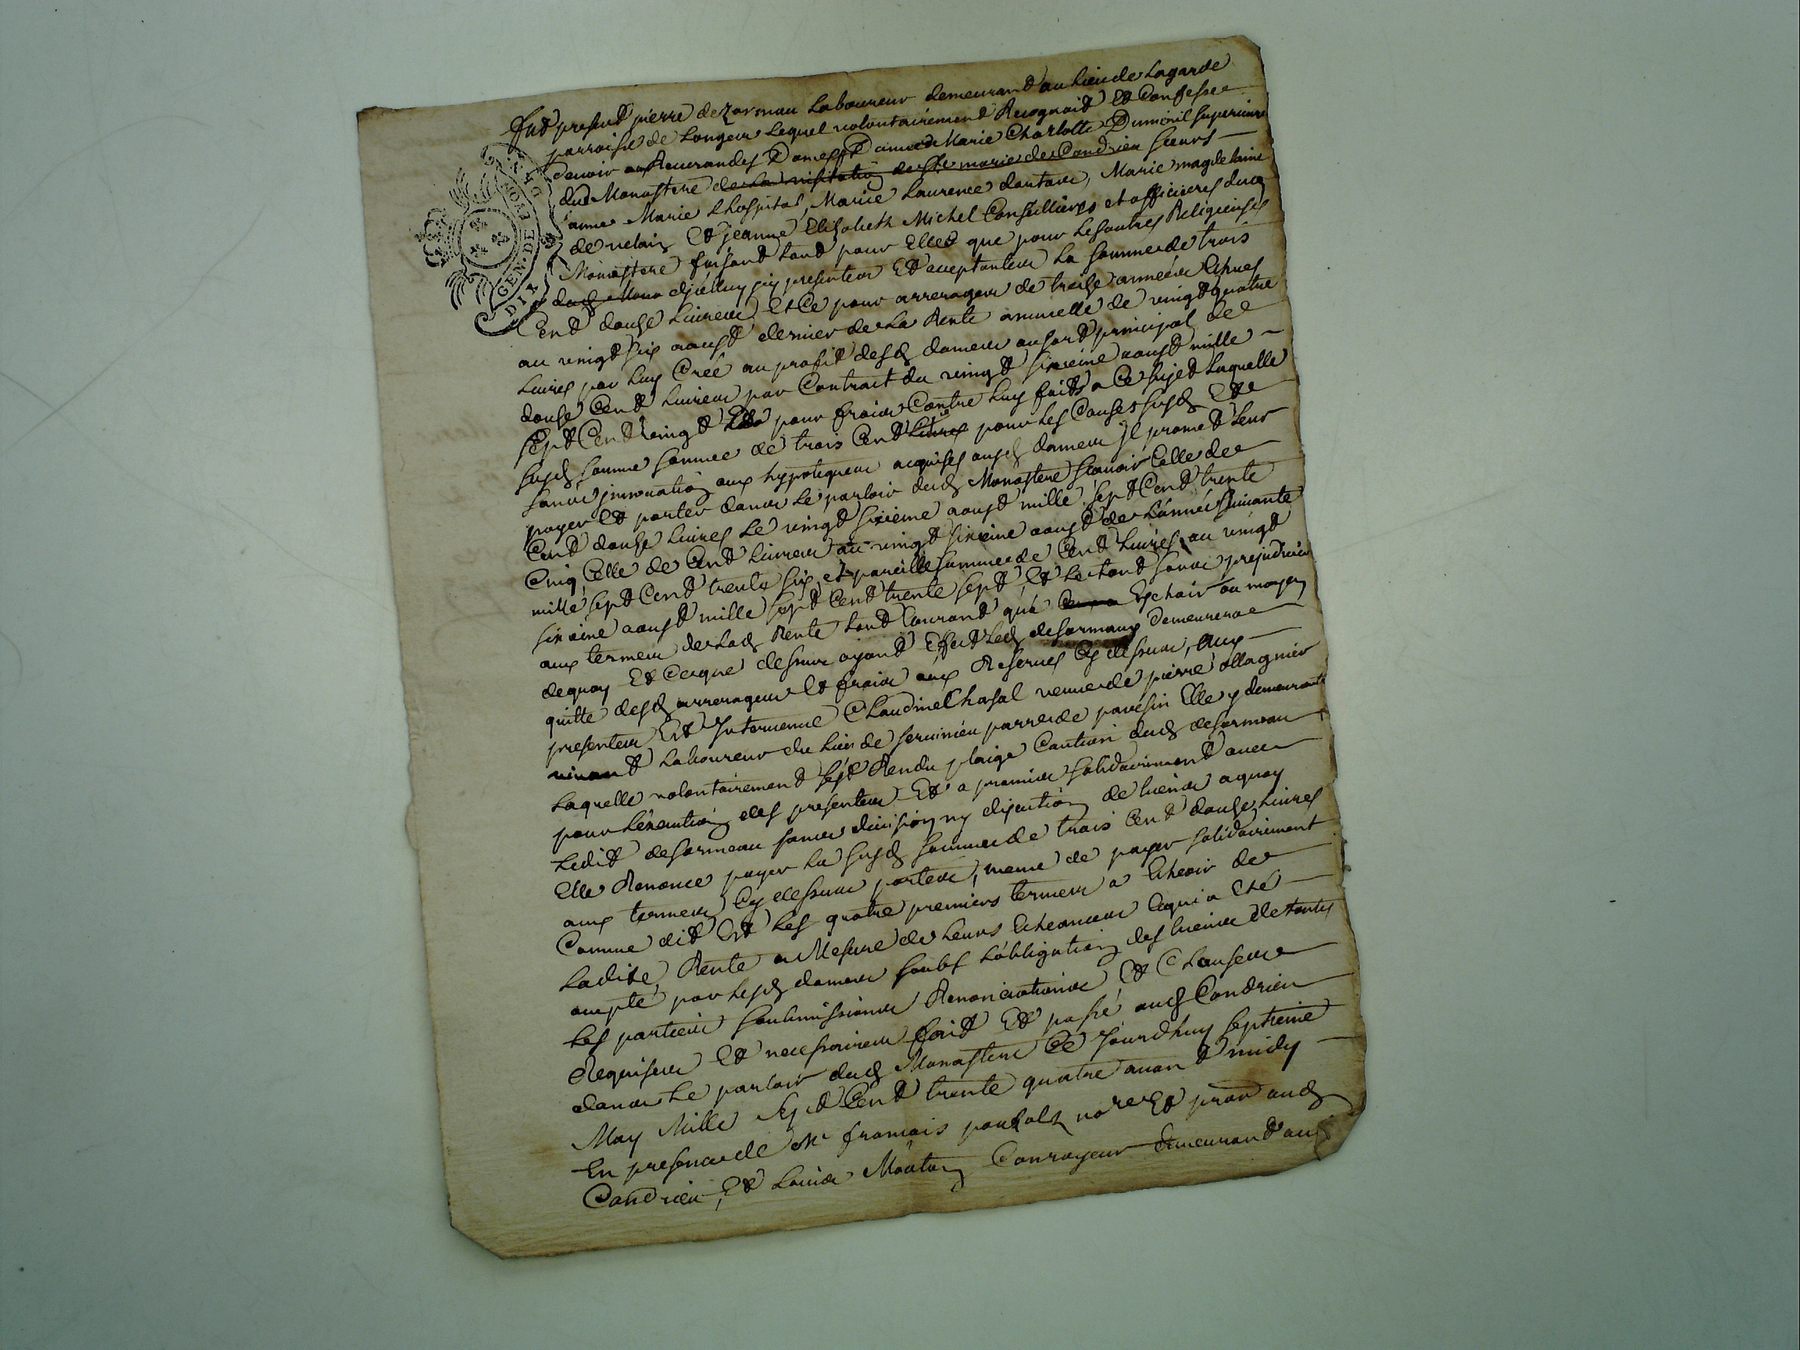 GEN. DE
fut present pierre dezormau Laboureur demeurant au Lieu de Lagarde
parroisse de Longen Lequel volontairement Recognoit Et Confesse
devoir aux Reverandes Dames Dame Marie Charlotte Dumenil Superieure
dud Monastere de La visitation de Ste marie de Condrieu Sœurs
anne Marie Lhospital, Marie Laurence dantave, Marie magdelaine
de velain Et jeanne Elisabeth Michel Conseillieres et officieres dud
Monastere faisant tant pour Elles que pour Les autres Religieuses
presentes Et acceptantes La somme de trois
Cent douze Livres, Et Ce pour arrerages de treize années Echues
au vingt six aoust dernier de La Rente annuelle de vingt quatre
Livres par Luy Creé au profit desd dames au sort principal de
douze Cent Livres par Contrait du vingt sixieme aoust mille
sept Cent vingt pour frais Contre Luy faits a Ce sujet Laquelle
susd somme somme de trois Cent Livres pour Les Causes susd Et
sans innovation aux hypoteques acquises ausd dames jl promet Leur
payer Et porter dans Le parloir dud Monastere scavoir Celle de
Cent douze Livres Le vingt sixieme aoust mille sept Cent trente
Cinq, Celle de Cent Livres au vingt sixieme aoust de L'année suivante
mille sept Cent trente six, et pareille somme de Cent Livres au vingt
sixieme aoust mille sept Cent trente sept, Et Le tout sans prejudice
aux termes de Lad Rente tant Courant qu'a Echoir au moyen
dequoy Et Ceque dessus ayant Effet Led desormaux demeurera
quitte desd arrerages Et frais aux Reserves Cy dessus, aux
presentes Est Intervenue Claudine Chasal veuve de pierre allagnier
vivant Laboureur du Lieu de servinieu parr de pavesin Elle y demeurant
Laquelle volontairement s'est Rendu plaige Caution dud desormeau
pour L'execution des presentes Et a promis solidairement avec
Ledit desormeau sans division ny discution de biens aquoy
Elle Renonce payer La susd somme de trois Cent douze Livres
aux termes Cy dessus portes, meme de payer solidairement
Comme dit Est Les quatre premiers termes a Echeoir de
Ladite Rente a Mesure de Leurs Echeances Cequi a Eté
accepté par Lesd dames soubs L'obligation des biens de toutes
Les parties soubmissions Renonciations, Et Clauses
Requises Et necessaires fait Et passé aud Condrieu
dans Le parloir dud Monastere Ce Jourdhuy septieme
May Mille Sept Cent trente quatre avant midy
En presence de Me francois no.re Et aud
Condrieu, Et Louis Mouton Conroyeur demeurant aud